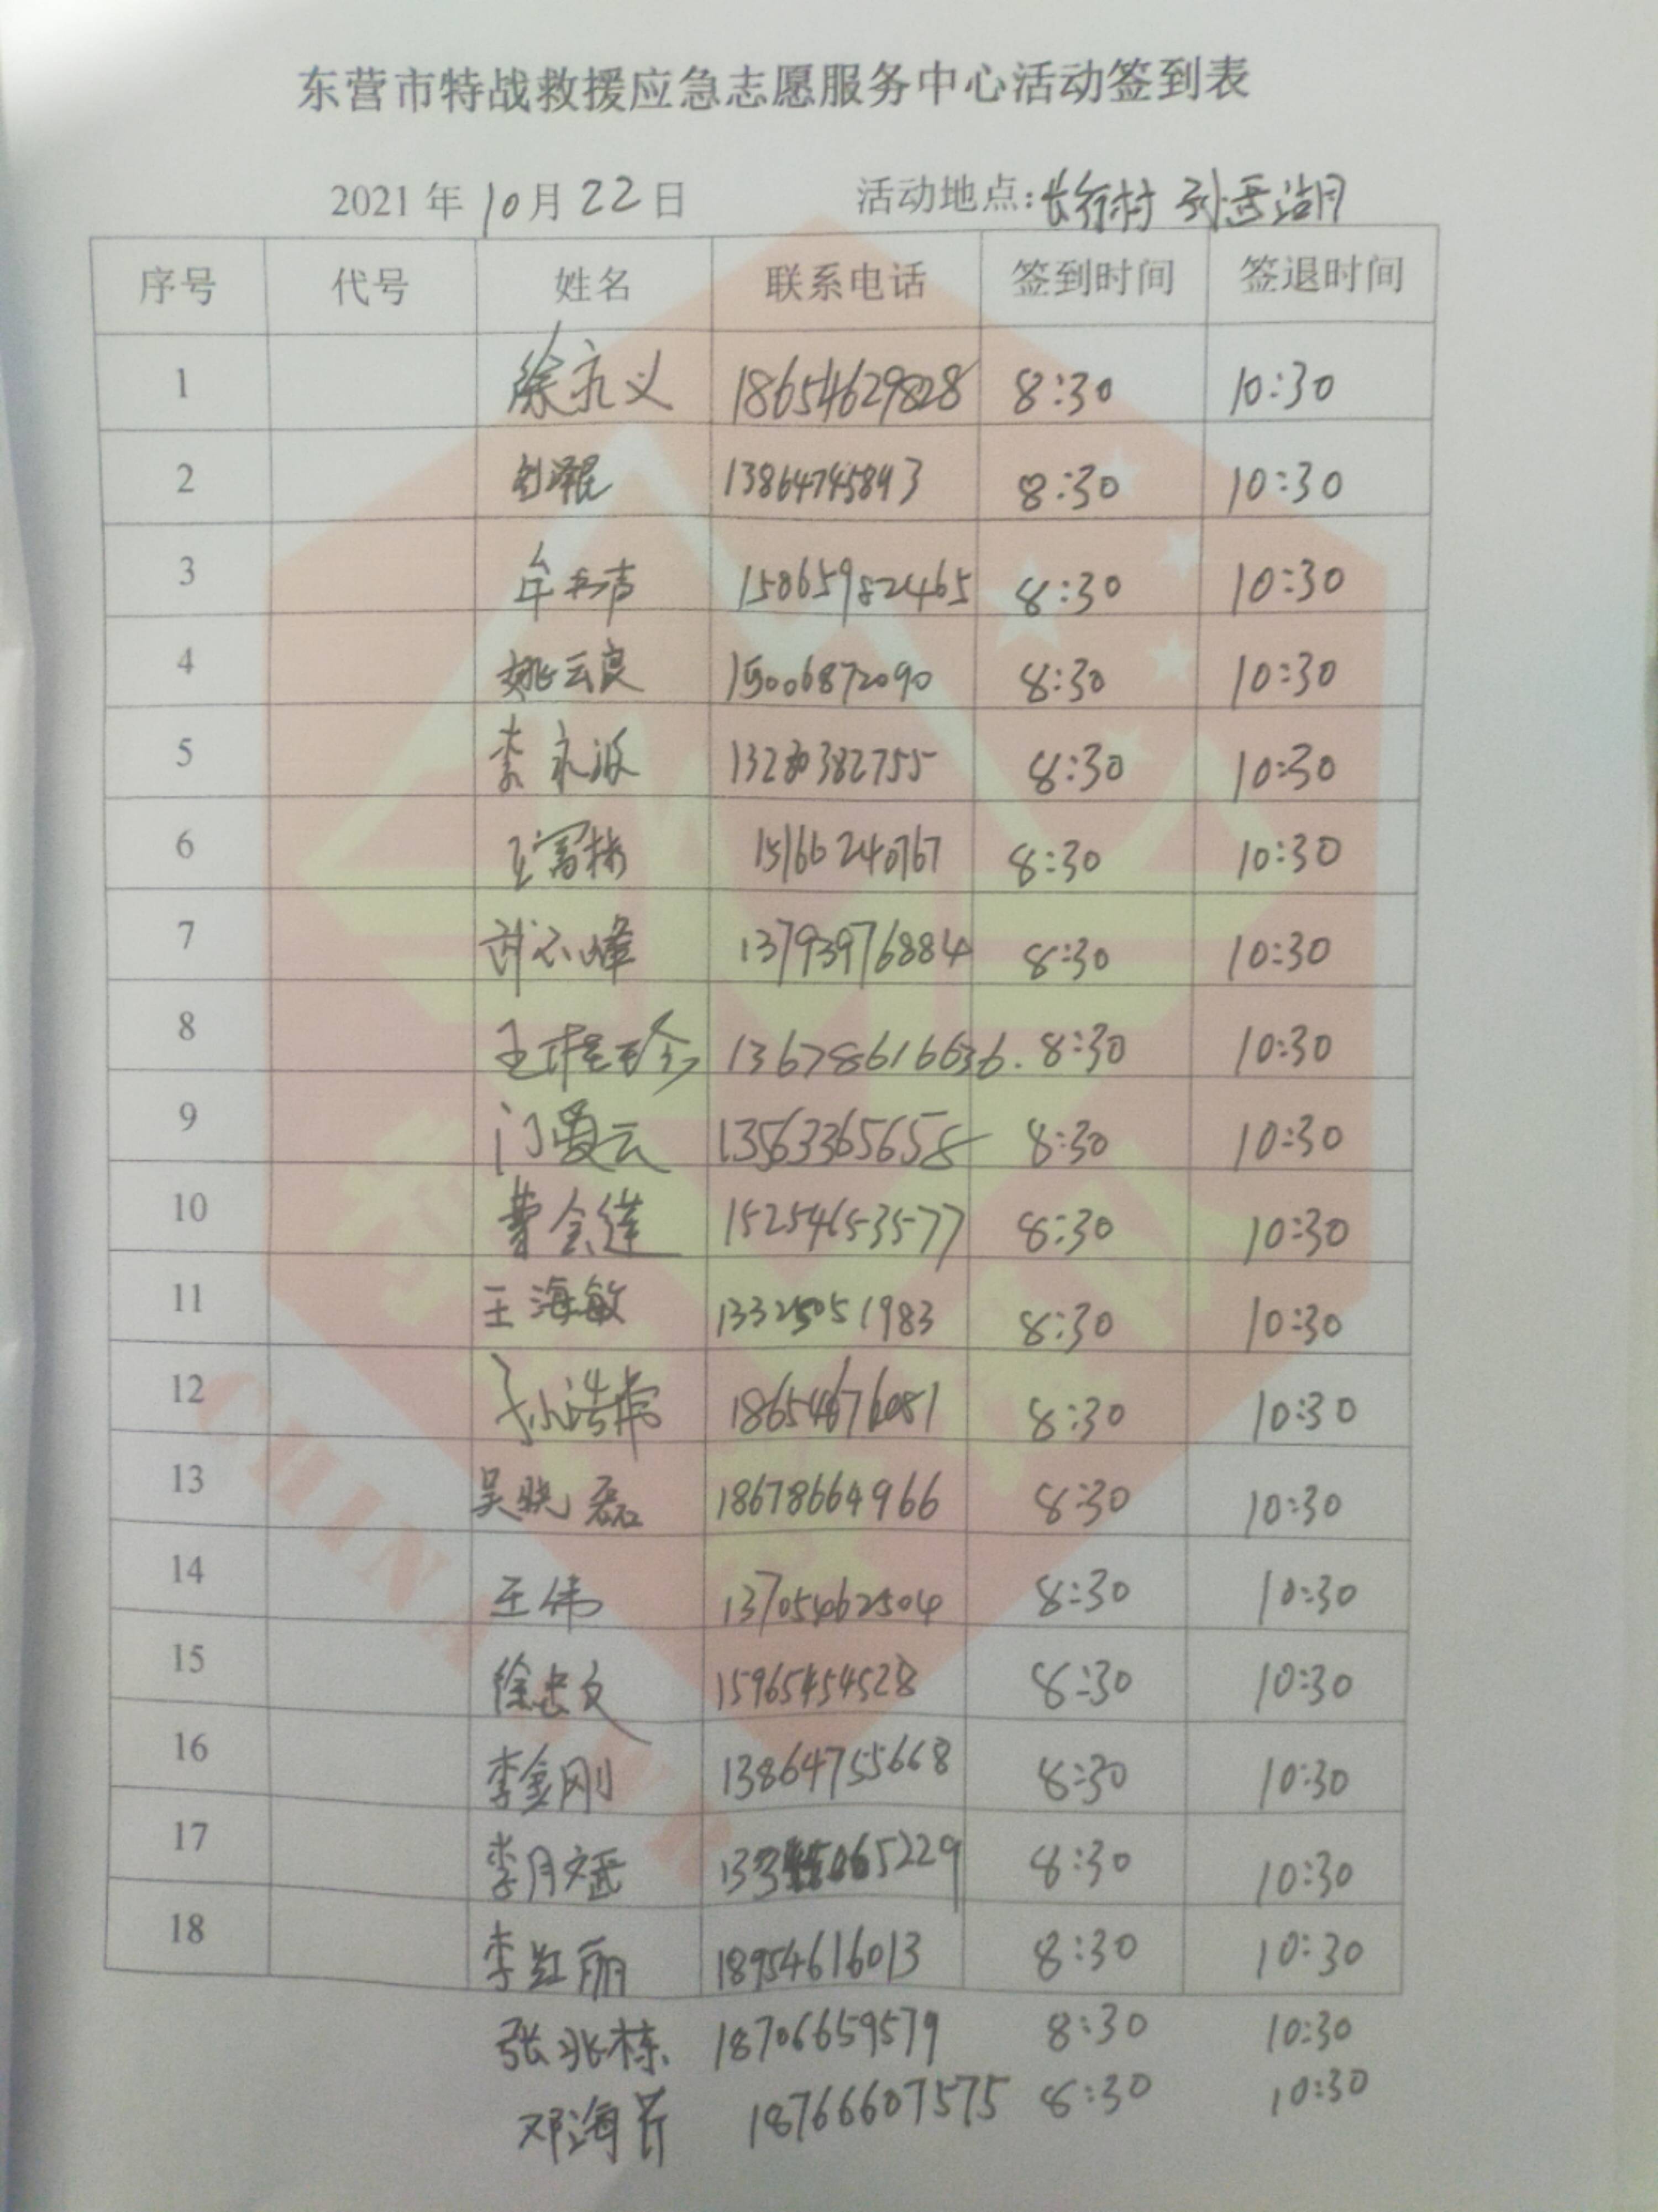 东营市特战救援应急志愿服务中心活动签到表
2021 年 10 月 22 日 活动地点: 长行村 孙武湖
序号 代号 姓名 联系电话 签到时间 签退时间
1 徐永义 18654629828 8:30 10:30
2 13864745893 8:30 10:30
3 15865982465 8:30 10:30
4 姚云良 15006872090 8:30 10:30
5 李永波 8:30 10:30
6 王富林 15166240767 8:30 10:30
7 13793976884 8:30 10:30
8 王桂珍 13678616636. 8:30 10:30
9 门爱云 13563365658 8:30 10:30
10 曹金莲 15254653577 8:30 10:30
11 王海敏 8:30 10:30
12 8:30 10:30
13 吴晓磊 18678664966 8:30 10:30
14 王伟 13705462504 8:30 10:30
15 徐忠文 15965454528 8:30 10:30
16 李金刚 13864755668 8:30 10:30
17 8:30 10:30
18 李红丽 18954616013 8:30 10:30
张兆栋 18706659579 8:30 10:30
邓海芹 18766607575 8:30 10:30
CHINA